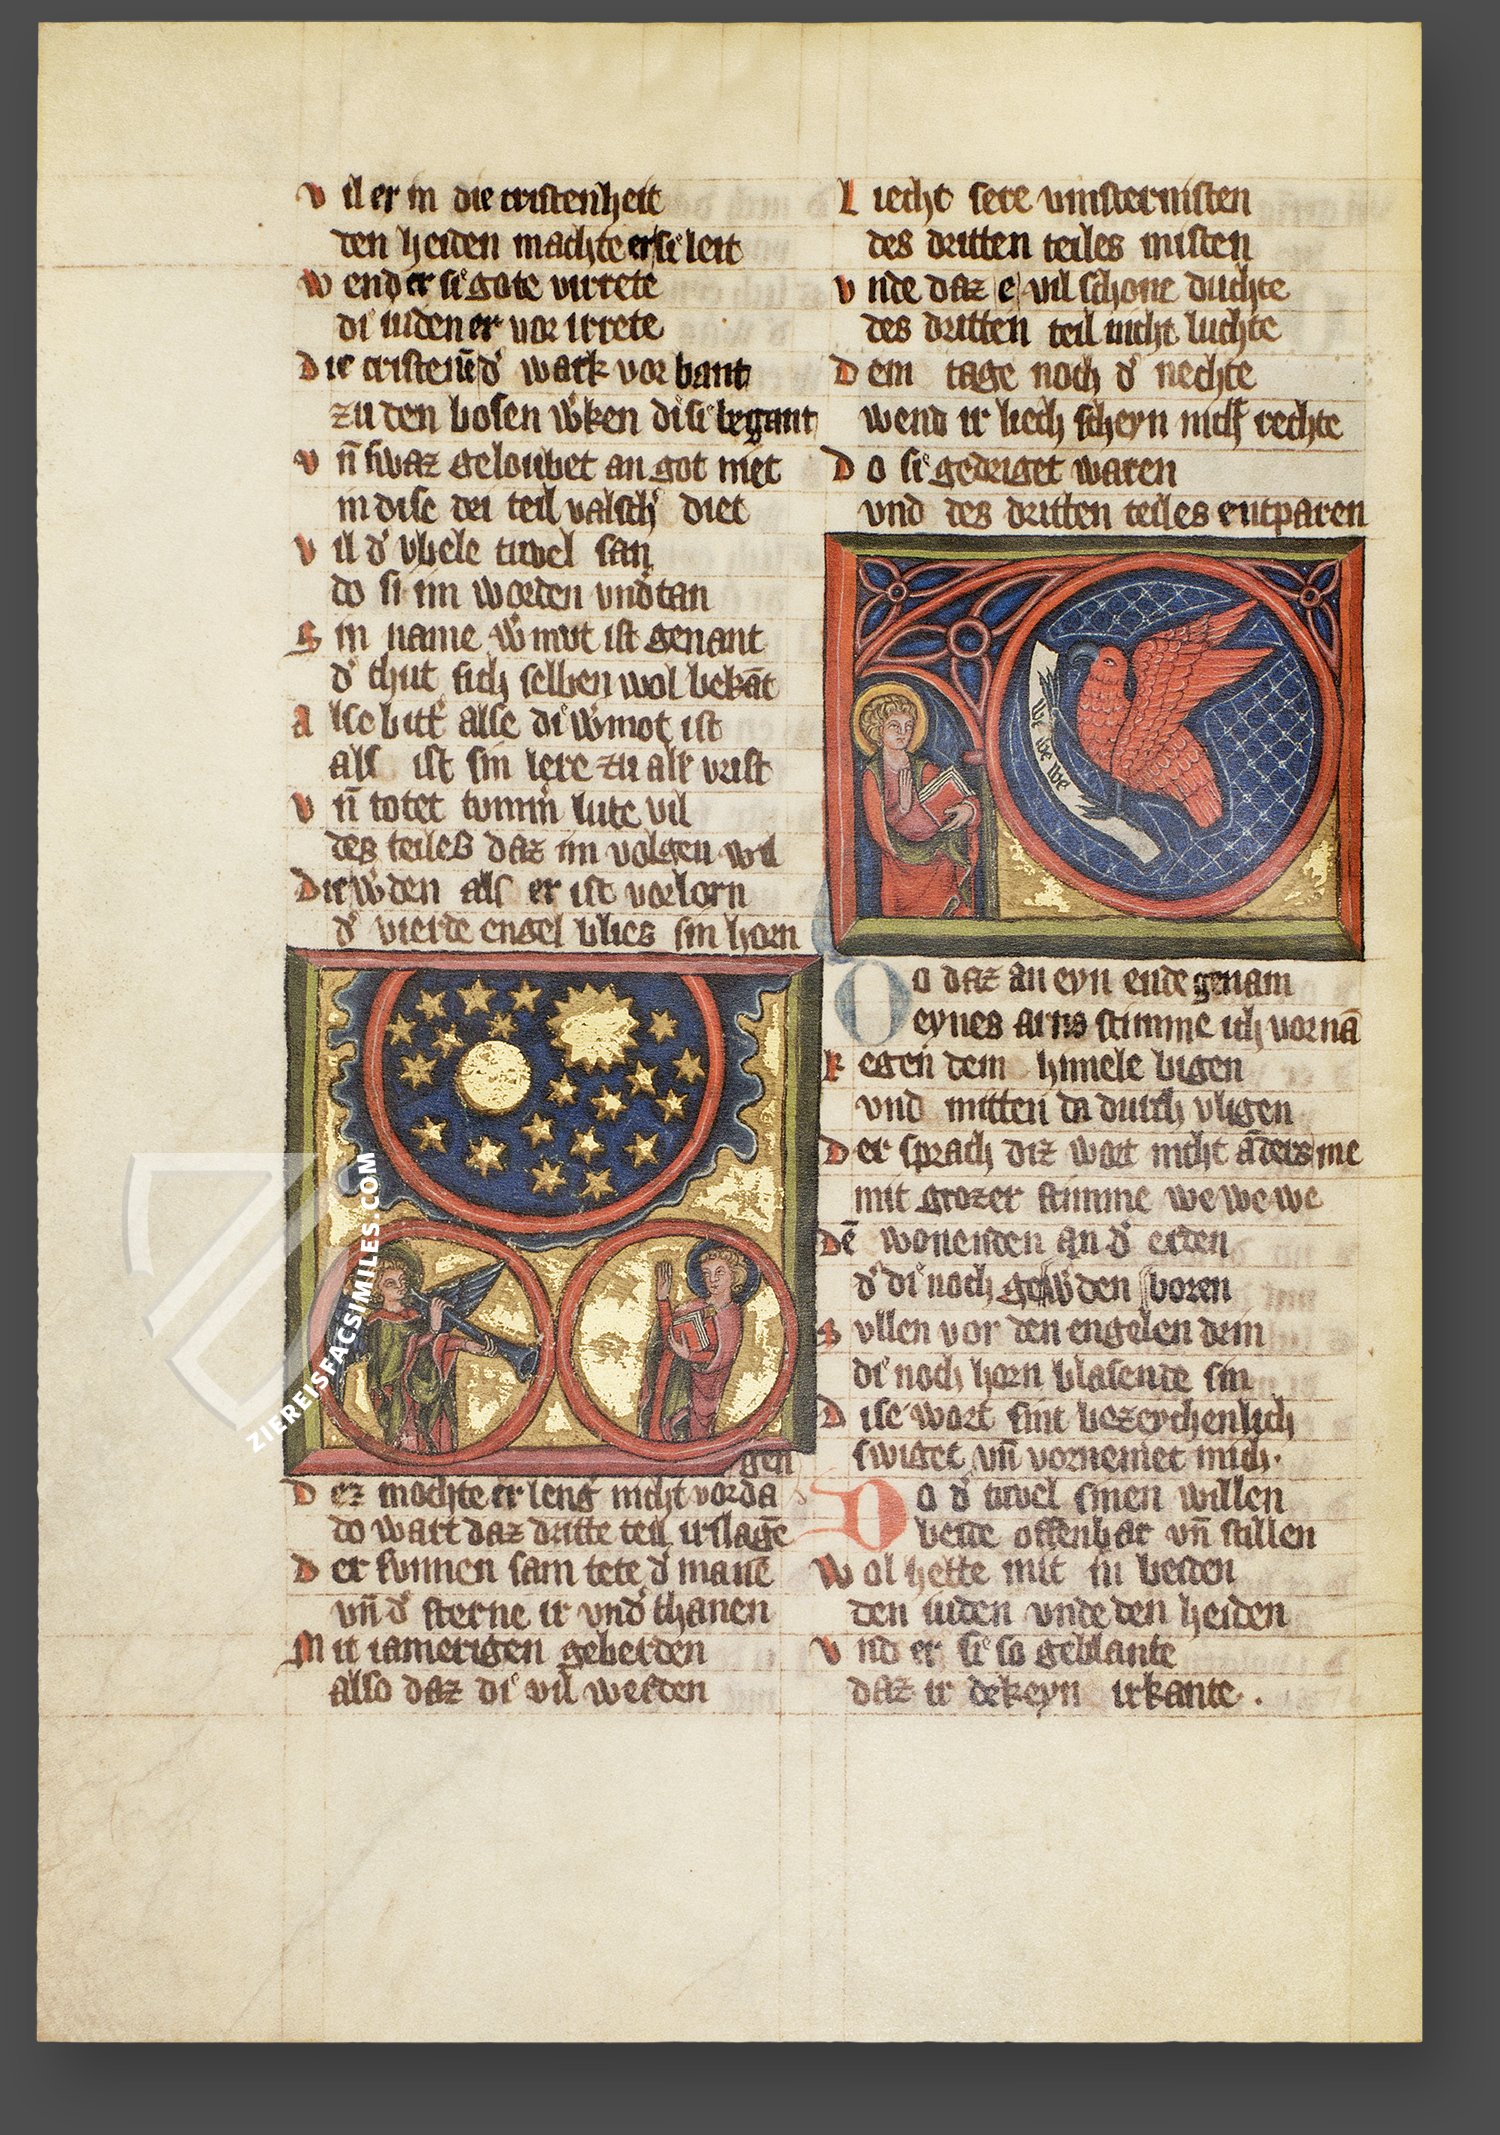 vil er in die cristenheit
den heiden machte er si leit
wend er si gote virrete
di iuden er vor irrete
Die cristen uñ d' wark vor bant
zu den bosen w'ken di si begant
vñ swaz geloubet an got niet
in dise dri teil valsch' diet
vil d' vbele tuvel san
do si im worden vnd'tan
Sin name w'mut ist genant
d' thut sich selben wol bekāt
also bitt' alse di w'mot ist
als ist sin lere zu all' vrist
vñ totet tumm' lute vil
des teiles daz im volgen wil
Die w'den als er ist vorlorn
d' vierde engel blies sin horn
gen
dez mochte er leng' nicht vorda
do wart daz dritte teil irslagē
Der sunnen sam tete d' manē
vñ d' sterne ir vnd'thanen
Mit iamerigen geberden
also daz di vil werden
Liecht sere vinsternisten
des dritten teiles misten
vnde daz e vil schone duchte
des dritten teil nicht luchte
Dem tage noch d' nechte
wend ir liech scheyn nicht rechte
Do si gedriget waren
vnd des dritten teiles entparen
we we we
Do daz an eyn ende genam
eynes arns stimme ich vornā
kegen dem himele bigen
vnd mitten da durch vligen
Der sprach diz wort nicht āders me
mit grozer stimme we we we
Dē wonenden an d' erden
d' di noch gew'den boren
sullen vor den engelen drin
di noch horn blasende sin
Dise wort sint bezeychenlich
swiget vñ vornemet mich.
Do d' tuvel sinen willen
beide offenbar vñ stillen
Wol hette mit in beiden
den iuden vnde den heiden
vnd er si so geblante
daz ir dekeyn irkante.
ZIEREISFACSIMILES.COM